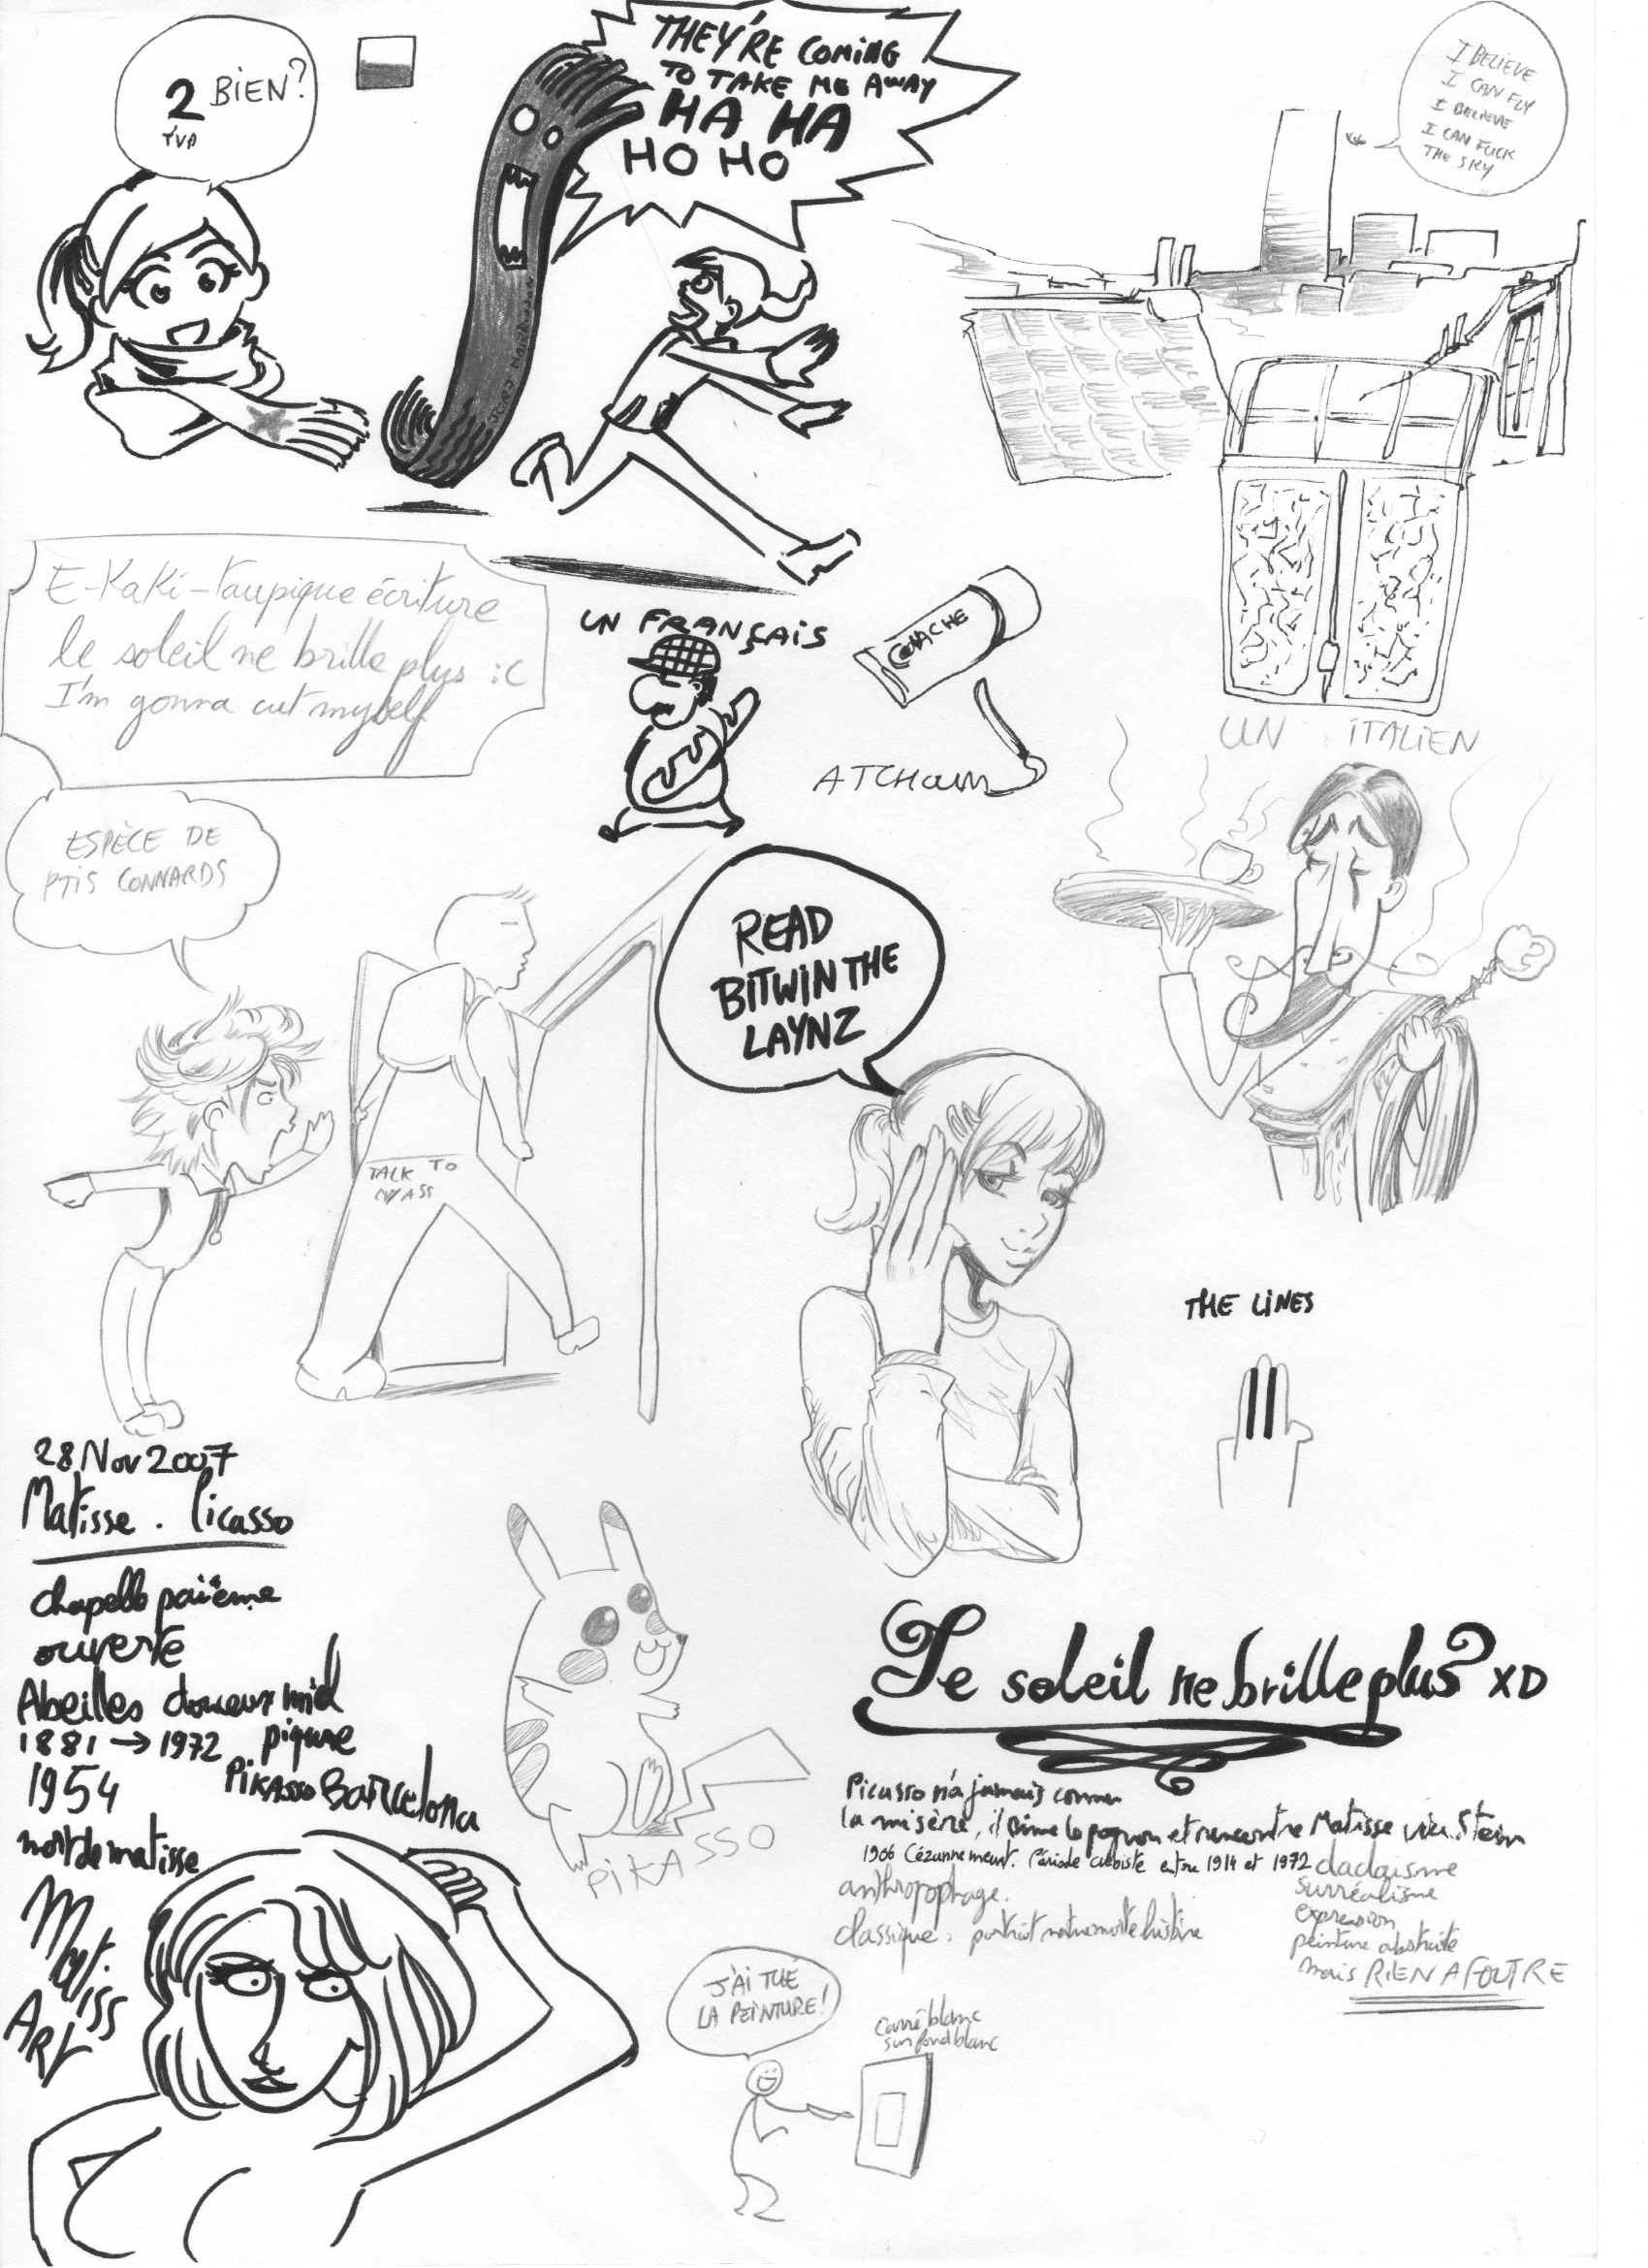 2 BIEN?
TVA
THEY'RE COMING
TO TAKE ME AWAY
HA HA
HO HO
I BELIEVE
I CAN FLY
I BELIEVE
I CAN FUCK
THE SKY
E-KaKi-taupique écriture
le soleil ne brille plus :c
I'm gonna cut myself
UN FRANÇAIS
GOUACHE
ATCHOUM
UN ITALIEN
ESPÈCE DE
PTIS CONNARDS
TALK TO
MY ASS
READ
BITWIN THE
LAYNZ
THE LINES
28 Nov 2007
Matisse . Picasso
chapelle païenne
ouverte
Abeilles douceur miel
1881 → 1972 piqure
1954 PiKASSO Barcelona
mort de matisse
Matiss
ART
PiKASSO
Le soleil ne brille plus? XD
Picasso n'a jamais connu
la misère, il aime le pognon et rencontre Matisse via Stein
1906 Cézanne meurt. Période cubiste entre 1914 et 1972 dadaisme
anthropophage. surréalisme
expression
classique: portrait nature morte histoire
peinture abstraite
mais RIEN A FOUTRE
J'AI TUÉ
LA PEINTURE!
Carré blanc
sur fond blanc